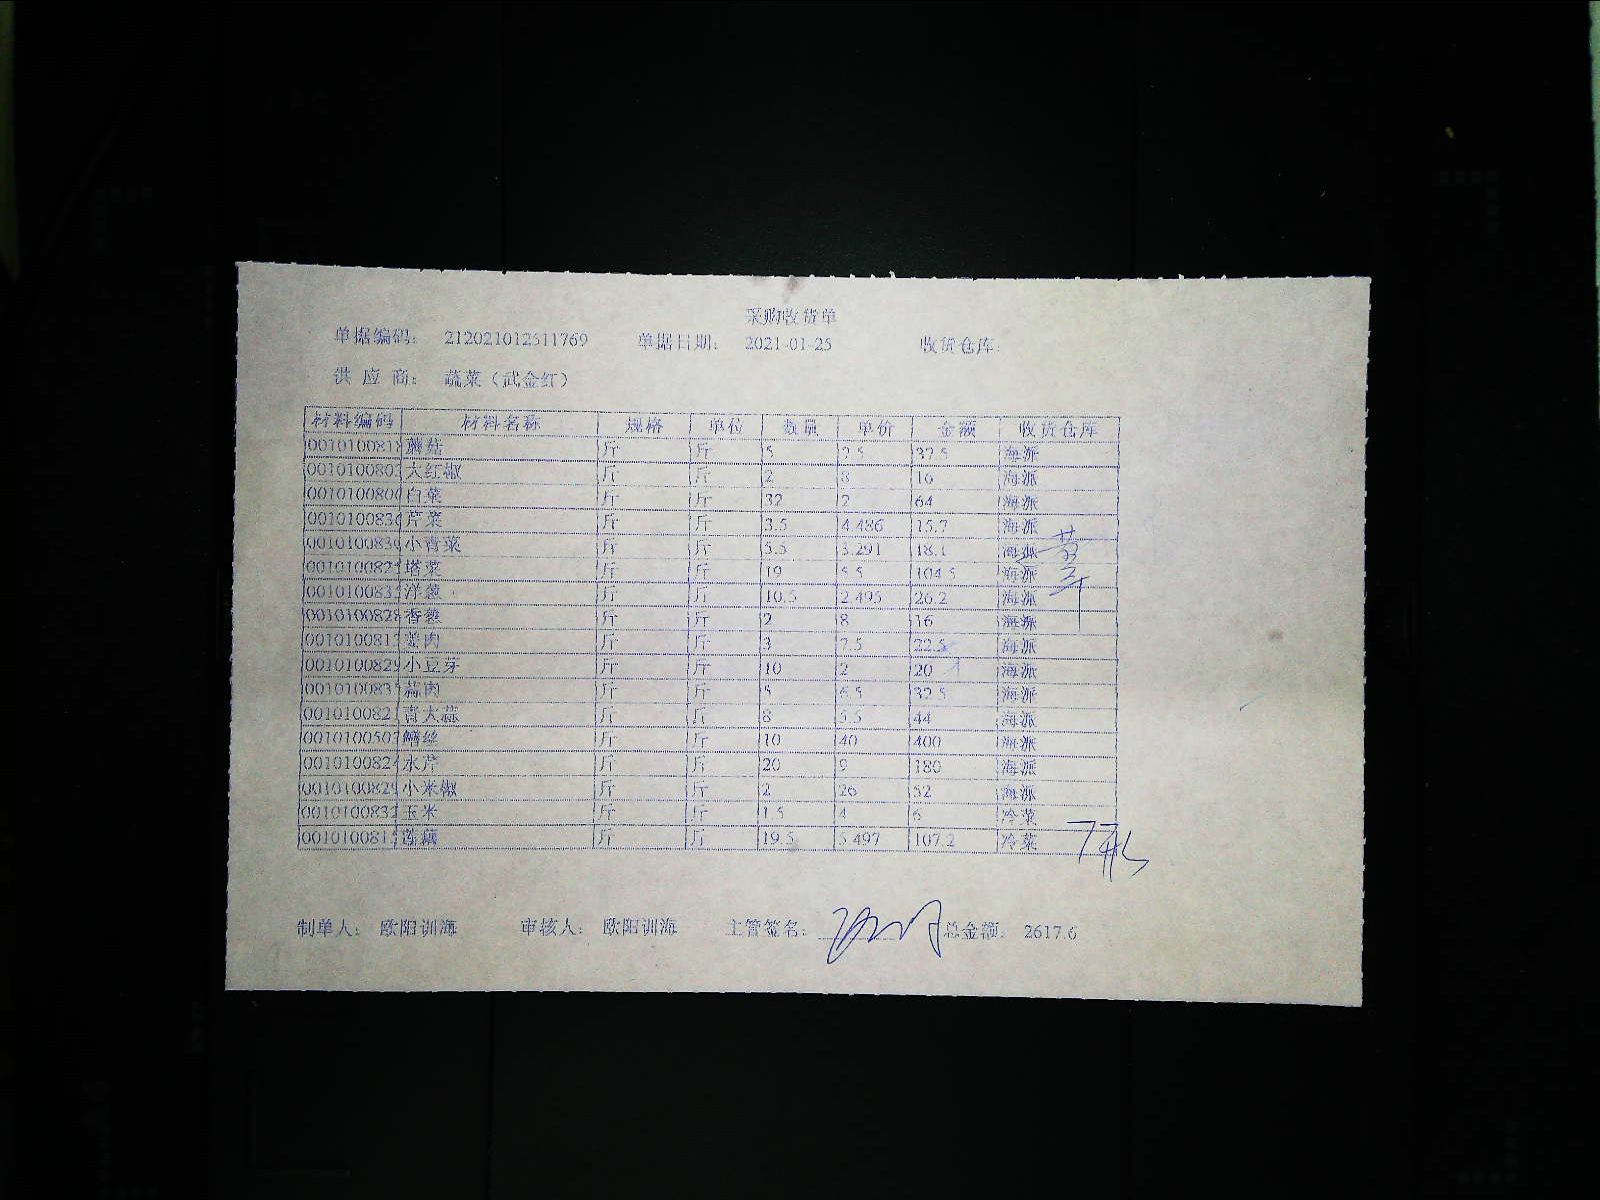 采购收货单
单据编码： 212021012511769 单据日期： 2021-01-25 收货仓库：
供 应 商： 蔬菜（武金红）
材料编码 材料名称 规格 单位 数量 单价 金额 收货仓库
001010081 蘑菇 斤 斤 5 7.5 37.5 海派
001010080 大红椒 斤 斤 2 8 16 海派
001010080 白菜 斤 斤 32 2 64 海派
001010083 芹菜 斤 斤 3.5 4.486 15.7 海派
001010083 小青菜 斤 斤 5.5 3.291 18.1 海派
001010082 塔菜 斤 斤 19 5.5 104.5 海派
001010083 洋葱 斤 斤 10.5 2.495 26.2 海派
001010082 香葱 斤 斤 2 8 16 海派
001010081 姜肉 斤 斤 3 7.5 22.5 海派
001010082 小豆芽 斤 斤 10 2 20 海派
001010083 蒜肉 斤 斤 5 6.5 32.5 海派
001010082 青大蒜 斤 斤 8 5.5 44 海派
001010050 鳝丝 斤 斤 10 40 400 海派
001010082 水芹 斤 斤 20 9 180 海派
001010082 小米椒 斤 斤 2 26 52 海派
001010083 玉米 斤 斤 1.5 4 6 冷菜
001010081 莲藕 斤 斤 19.5 5.497 107.2 冷菜
制单人： 欧阳训海 审核人： 欧阳训海 主管签名： 总金额： 2617.6